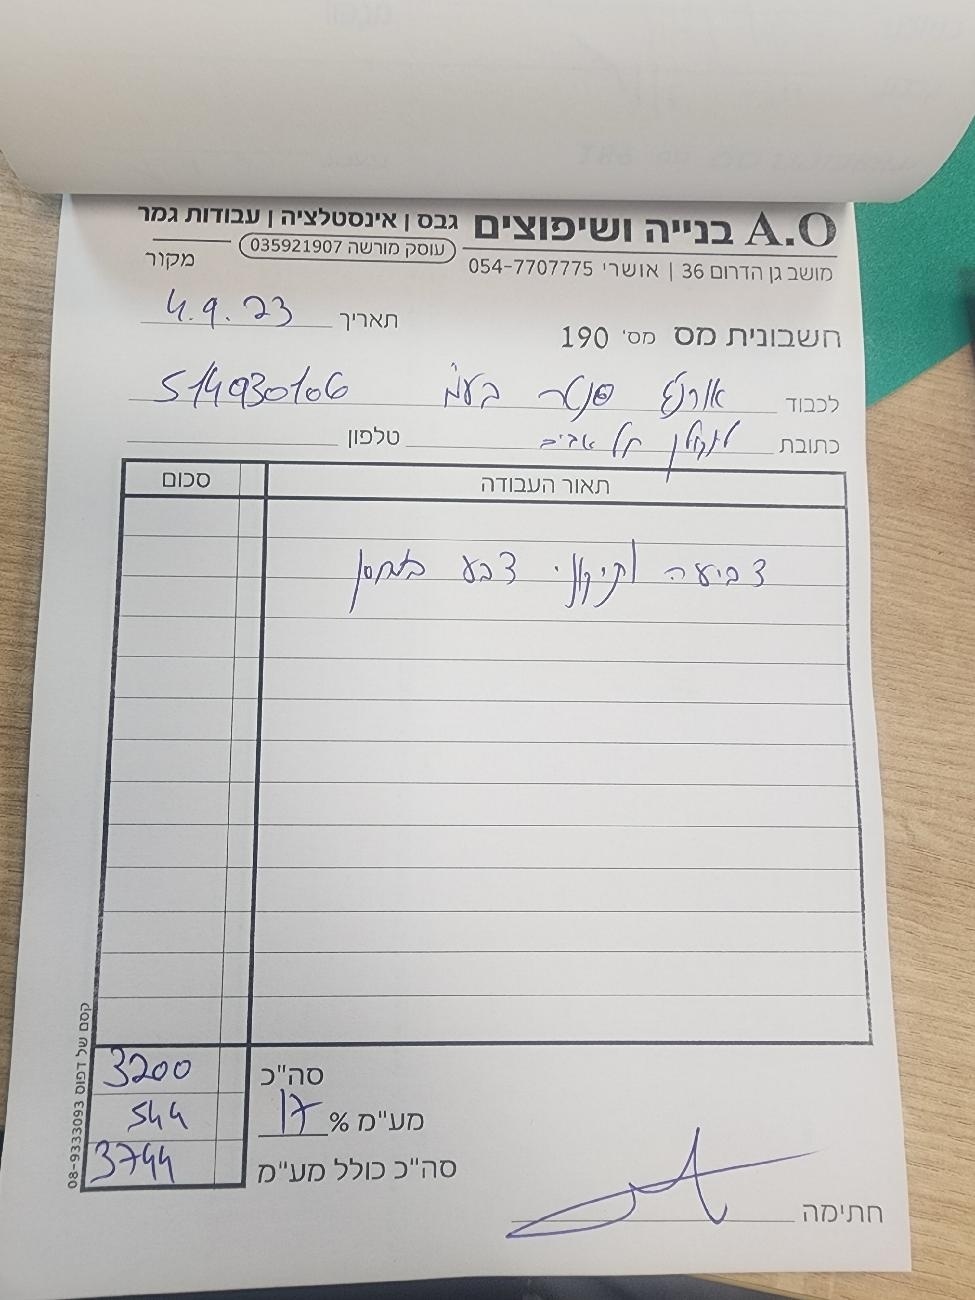 A.O בנייה ושיפוצים גבס | אינסטלציה | עבודות גמר
מושב גן הדרום 36 | אושרי 054-7707775 עוסק מורשה 035921907
מקור
חשבונית מס מס' 190 תאריך 4.9.23
לכבוד סנטר בע"מ 514930106
כתובת תל אביב טלפון
תאור העבודה סכום
צביעה ותיקוני צבע במחסן
סה"כ 3200
מע"מ % 17 544
סה"כ כולל מע"מ 3744
חתימה
קסם של דפוס 08-9333093